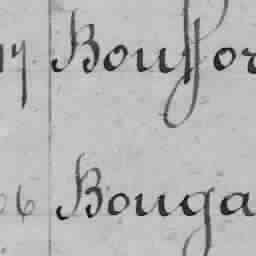 17 Bouffor
06 Bouga